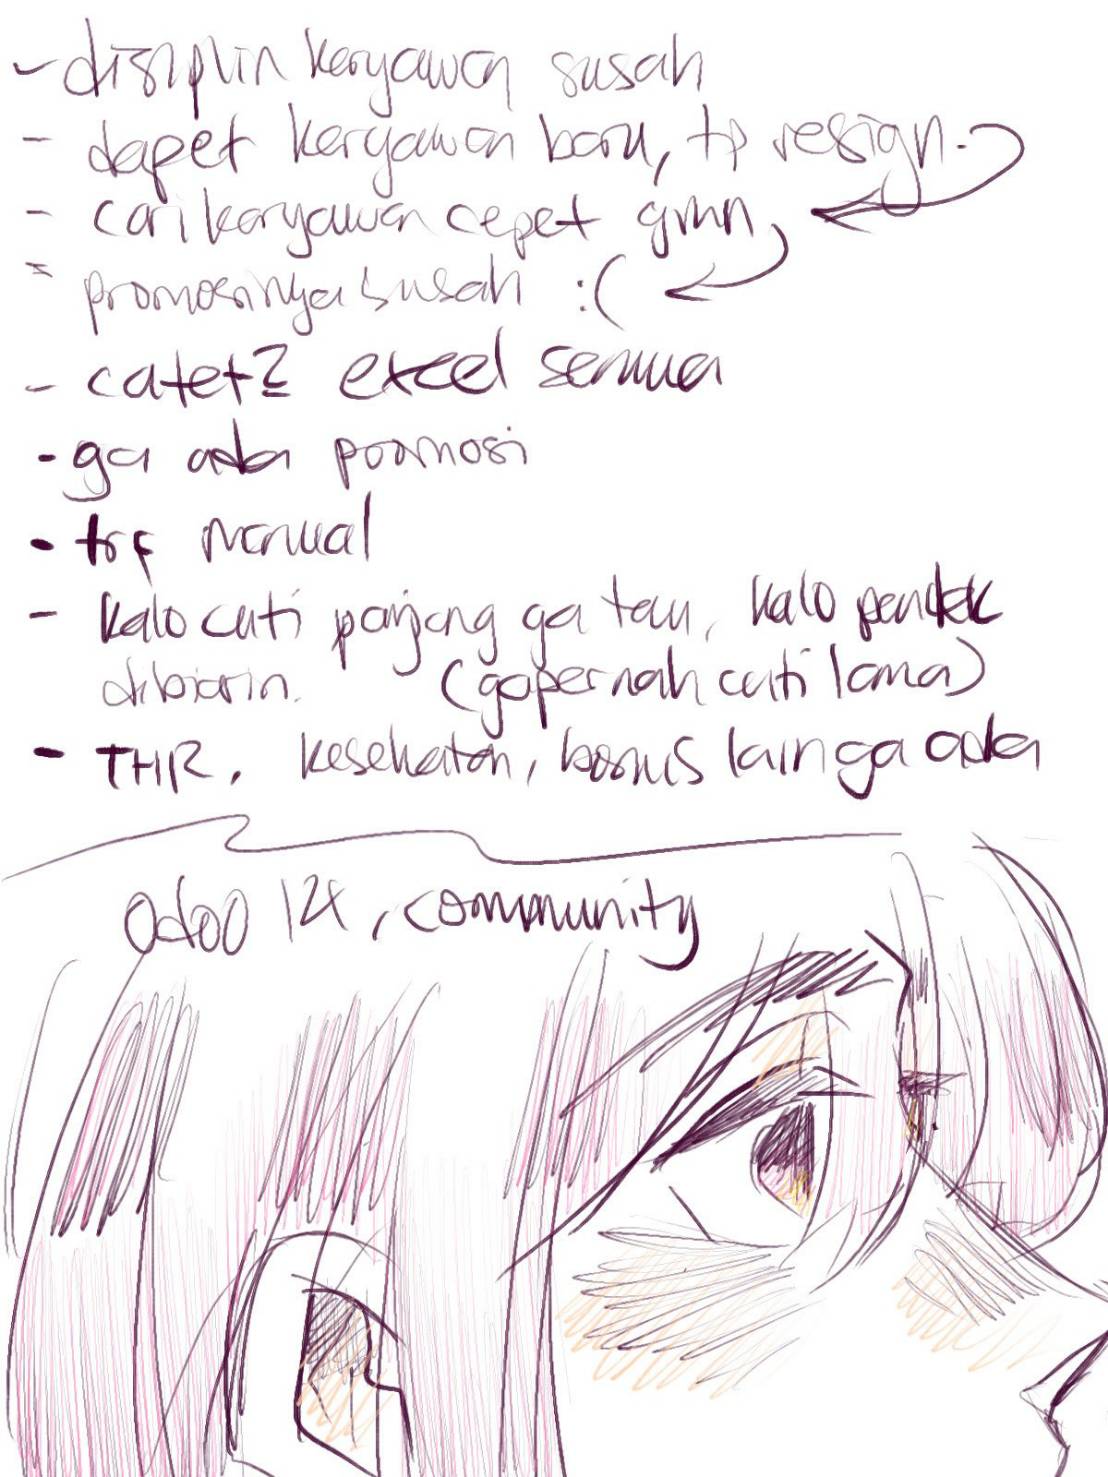 - disiplin karyawan susah
- dapet karyawan baru, tp resign.
- cari karyawan cepet gmn
- promosinya susah :(
- catet2 excel semua
- ga ada promosi
- trf manual
- kalo cuti panjang ga tau, kalo pendek
dibiarin. (gapernah cuti lama)
- THR, kesehatan, bonus lain ga ada
Odoo 12, community